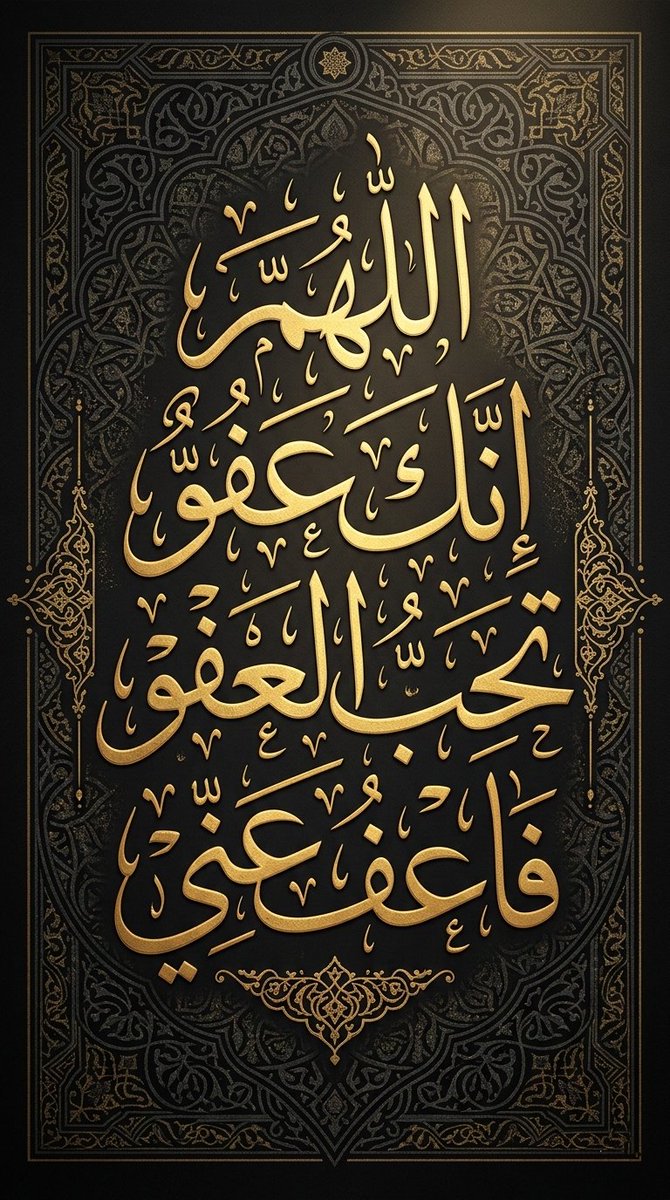 اللَّهُمَّ
إِنَّكَ عَفُوٌّ
تُحِبُّ الْعَفْوَ
فَاعْفُ عَنِّي